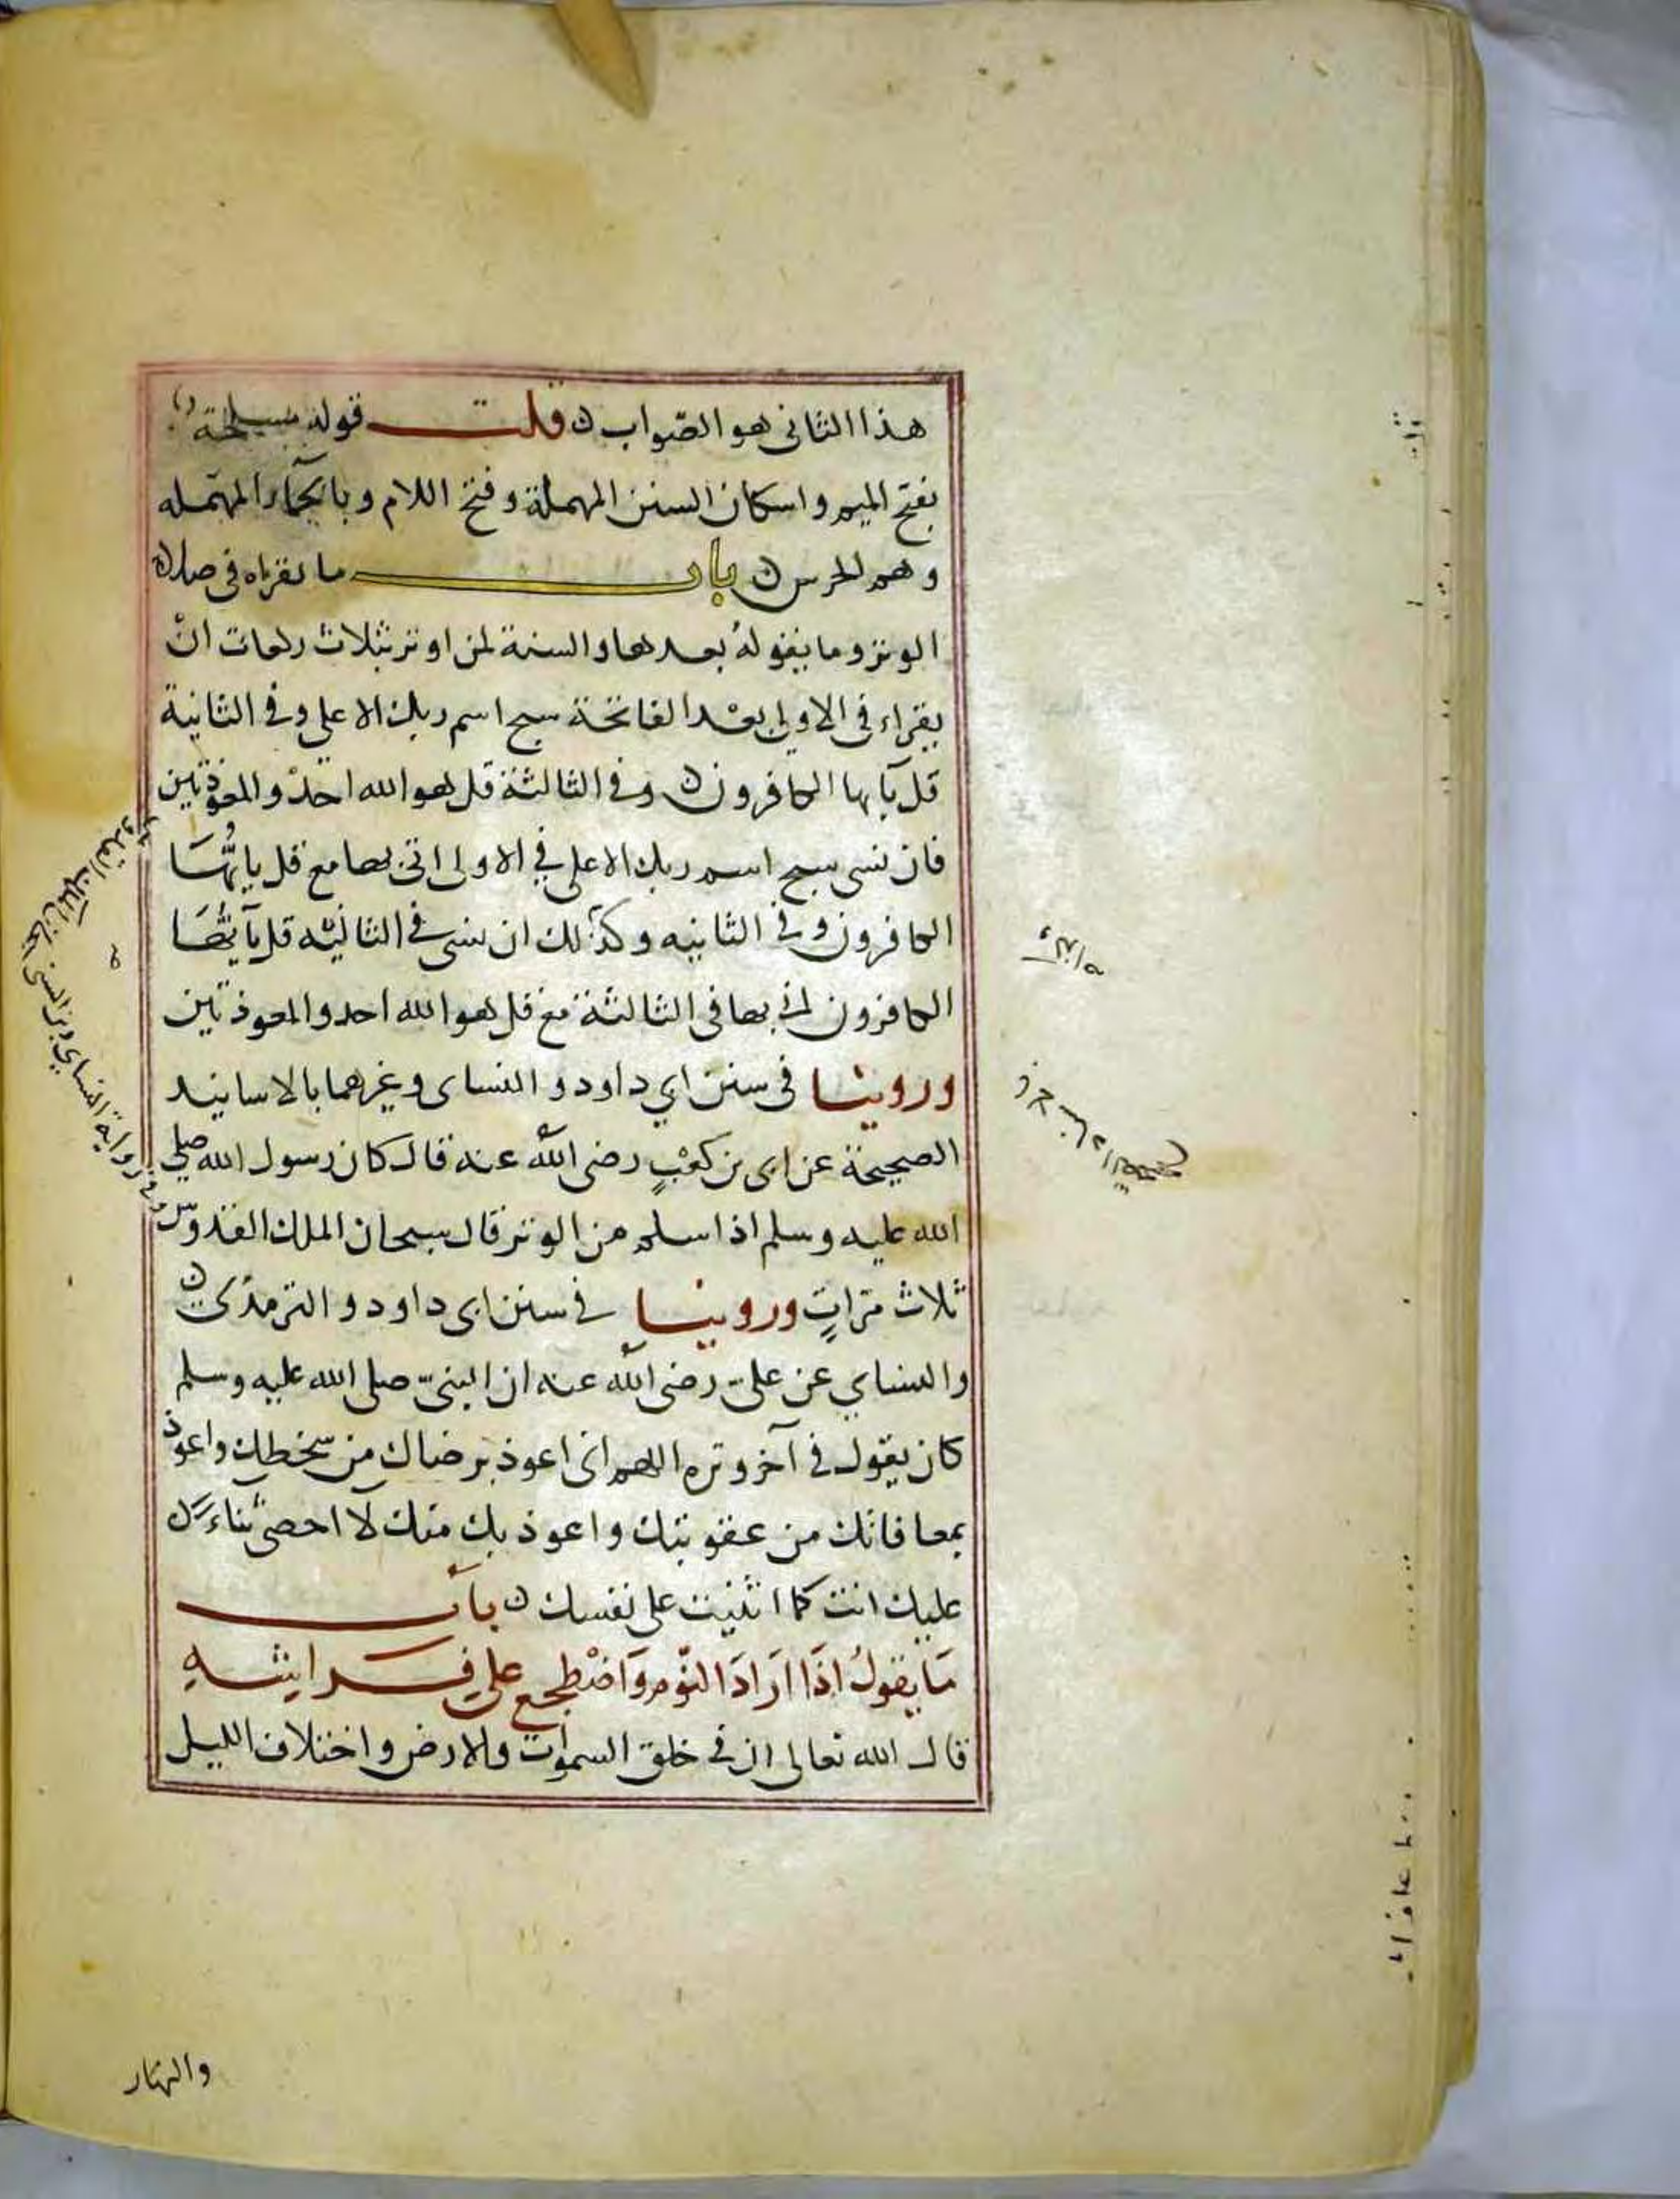 هذا الثانى هو الصواب ن قلت قوله مسلحة
بفتح الميم واسكان السين المهملة وفتح اللام وبالحآء المهمله
وهم الحرس ن باب ما يقرأه فى صلاة
الوتر وما يقوله بعدها والسنة لمن اوتر بثلاث ركعات انْ
يقراء فى الاولى بعْد الفاتحة سبح اسم ربك الاعلى وفى الثانية
قل يآيها الكافرون ن وفى الثالثة قل هو الله احدْ والمعوّذتين
فان نسى سبح اسم ربك الاعلى فى الاولى اتى بها مع قل يايُّهَا
الكافرون وفى الثانيه وكذلك ان نسى فى الثانيه قل يآيُّهَا
الكافرون اتى بها فى الثالثة مع قل هو الله احد والمعوذتين
وروينا فى سنن ابي داود والنساى وغيرهما بالاسانيد
الصحيحة عن ابى بن كعْبٍ رضى الله عنه قال كان رسول الله صلى
الله عليه وسلم اذا سلم من الوتر قال سبحان الملك القدوس
ثلاث مرّاتٍ وروينا فى سنن ابى داود والترمذى ن
والنساي عن علىّ رضى الله عنه ان النبىّ صلى الله عليه وسلم
كان يقول فى آخر وتره اللهم انى اعوذ برضاك من سخطك واعوذ
بمعافاتك من عقوبتك واعوذ بك منك لا احصى ثناءً
عليك انت كما اثنيت على نفسك ن بابُ
مَا يقولُ اذَا ارَادَ النّوم وَاضْطجع على فِرَاشِهِ
قال الله تعالى ان فى خلق السموات والارض واختلاف الليل
والنهار
وفى رواية النساي وبن السنى سبحان الملك القدوس